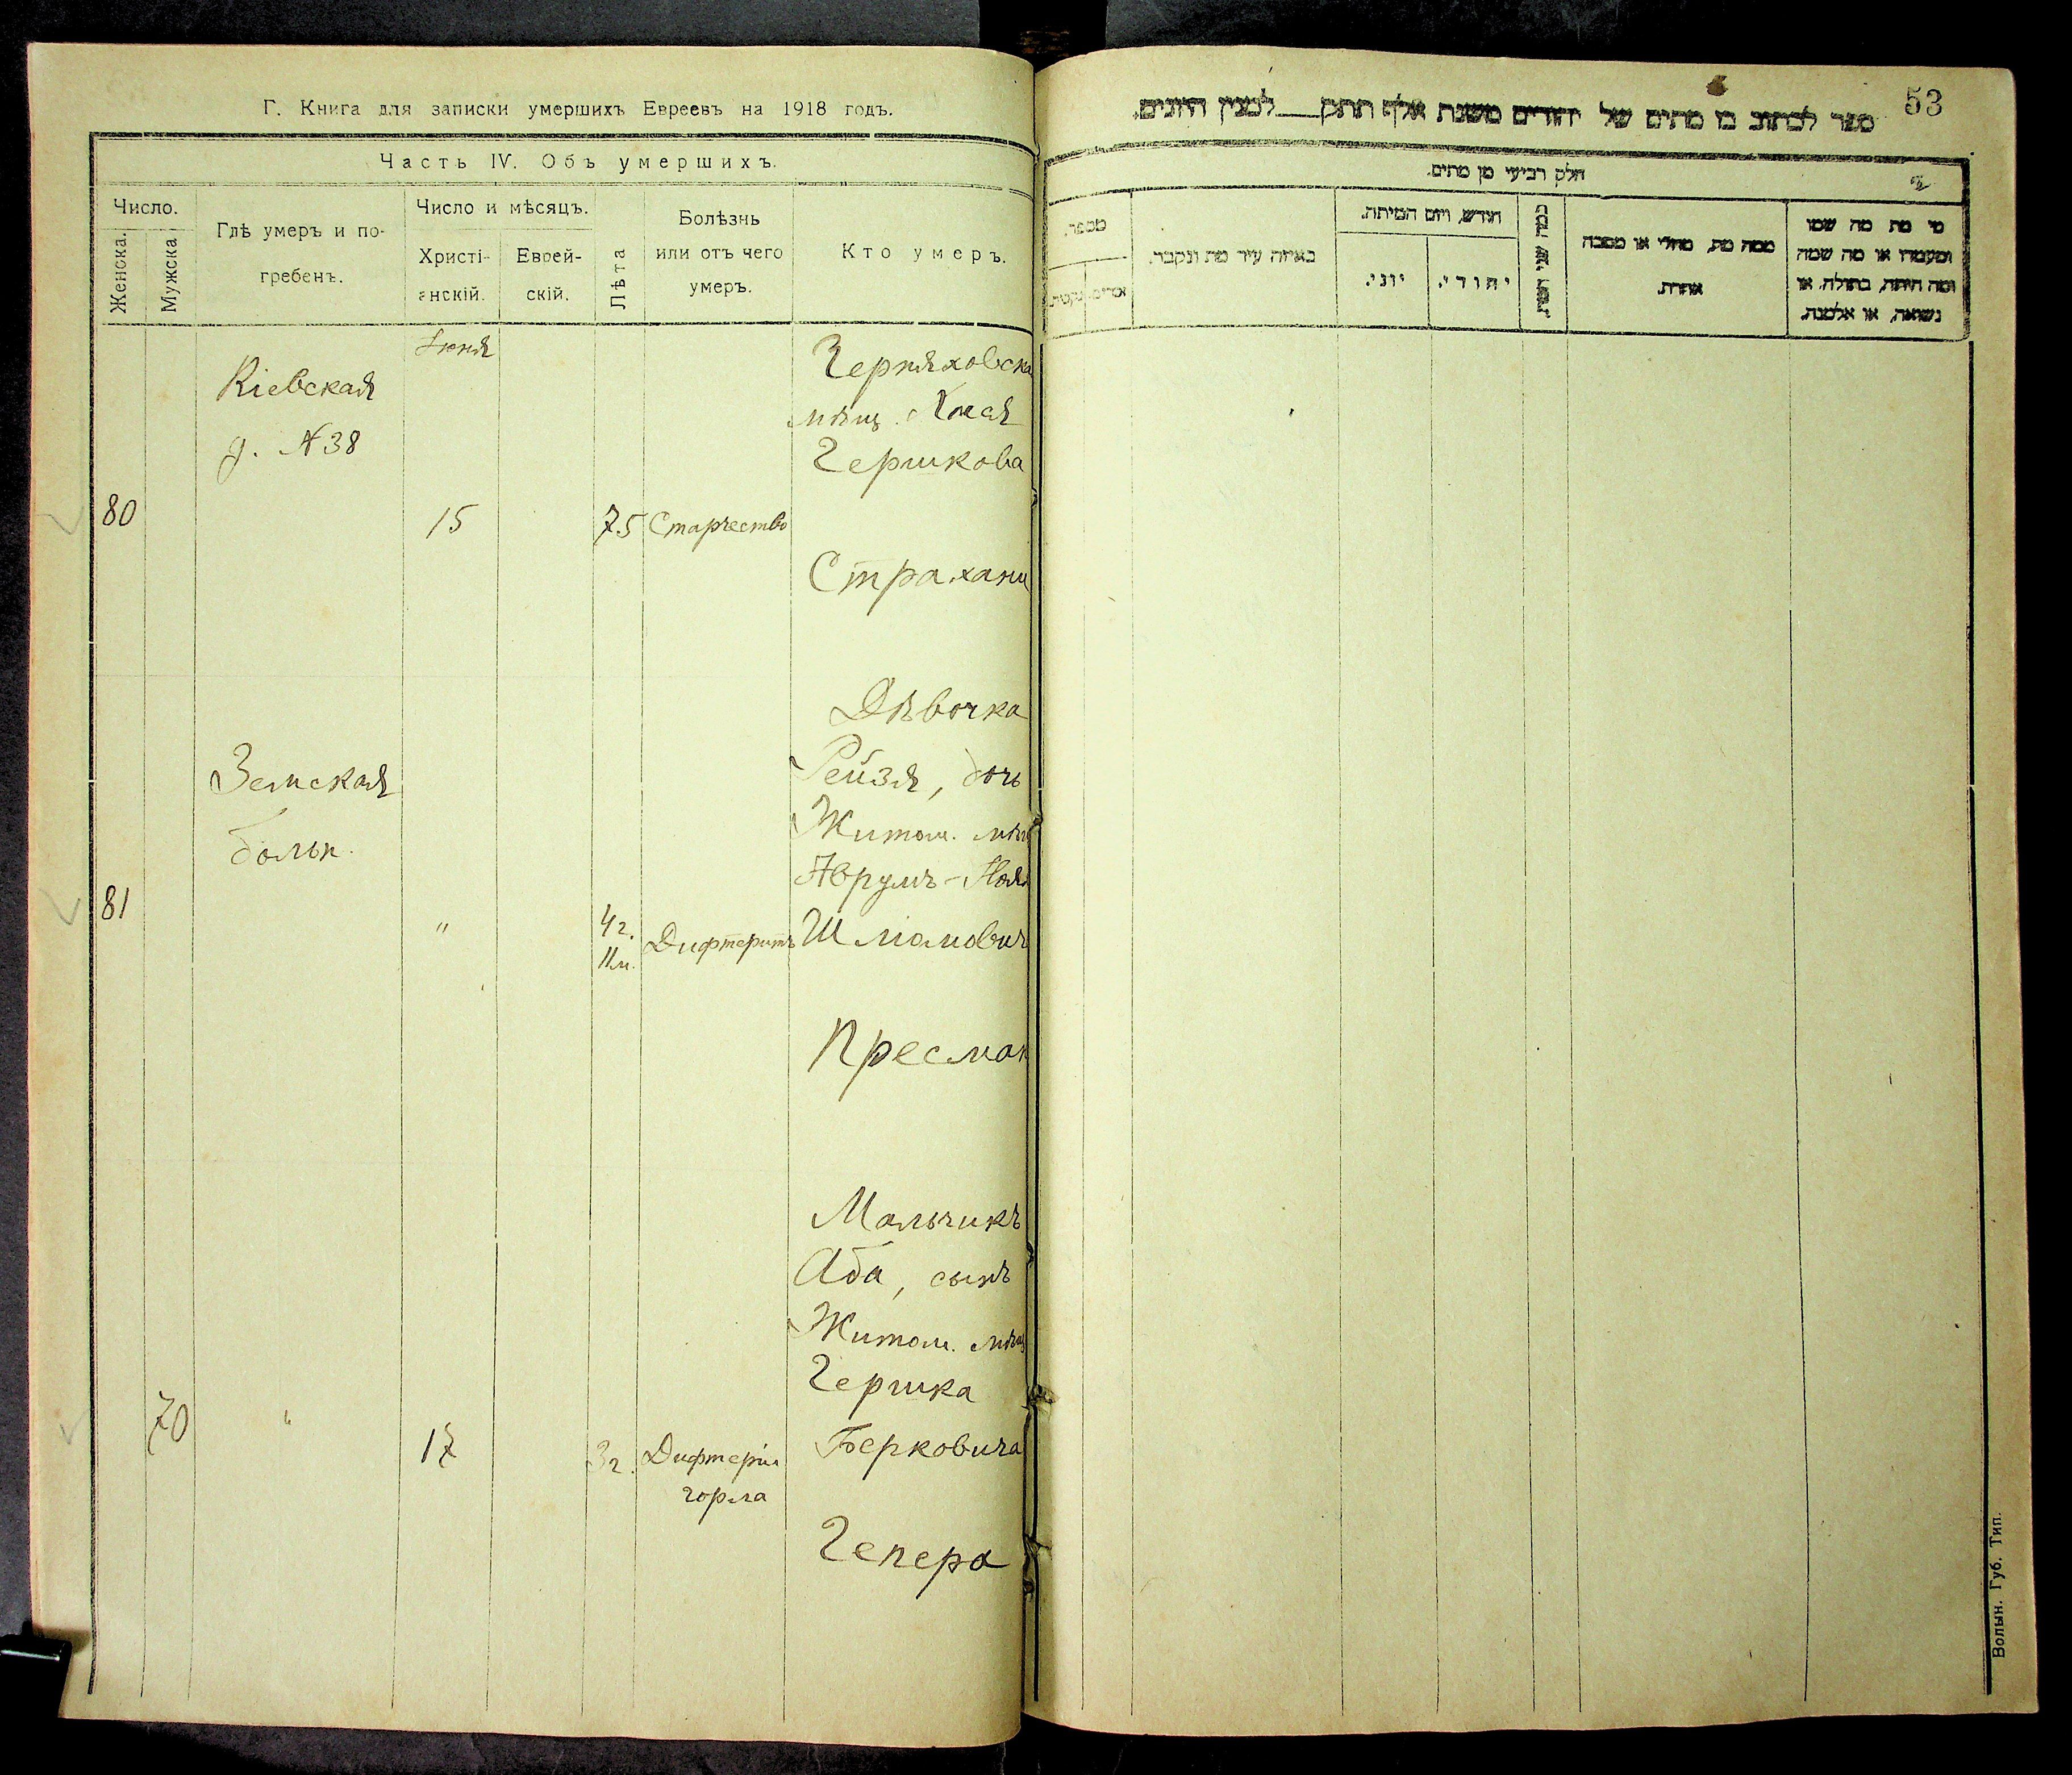 Г. Книга для записки умершихъ Евреевъ на 1918 годъ.
Часть IV. Объ умершихъ.
Число.
Женска.
Мужска
Гдѣ умеръ и по-
гребенъ.
Число и мѣсяцъ.
Христі-
анскій.
Еврей-
скій.
Лѣта
Болѣзнь
или отъ чего
умеръ.
Кто умеръ.
Кіевская
д. №38
80
Іюня
15
75
Старчество
Черняховска
мѣщ. Хмая
Гершкова
Страхани
Земская
больн.
81
"
4 г.
11 м.
Дифтеритъ
Дѣвочка
Рейзя, дочь
Житом. мѣщ
Аврумъ-Ноя
Шліомович
Пресман
70
"
17
3 г.
Дифтерія
горла
Мальчикъ
Аба, сынъ
Житом. мѣщ
Гершка
Берковича
Гепера
53
ספר לכתוב בו מתים של יהודים משנת אלף תתק___למנין היונים.
חלק רביעי מן מתים.
מספר.
באיזה עיר מת ונקבר.
חודש, ויום המיתה.
יוני.
יהודי.
כמה שני המת.
ממה מת, מחלי או מסבה
אחרת.
מי מת מה שמו
ומעמדו או מה שמה
ומה היתה, בתולה, או
נשואה, או אלמנה.
Волын. Губ. Тип.